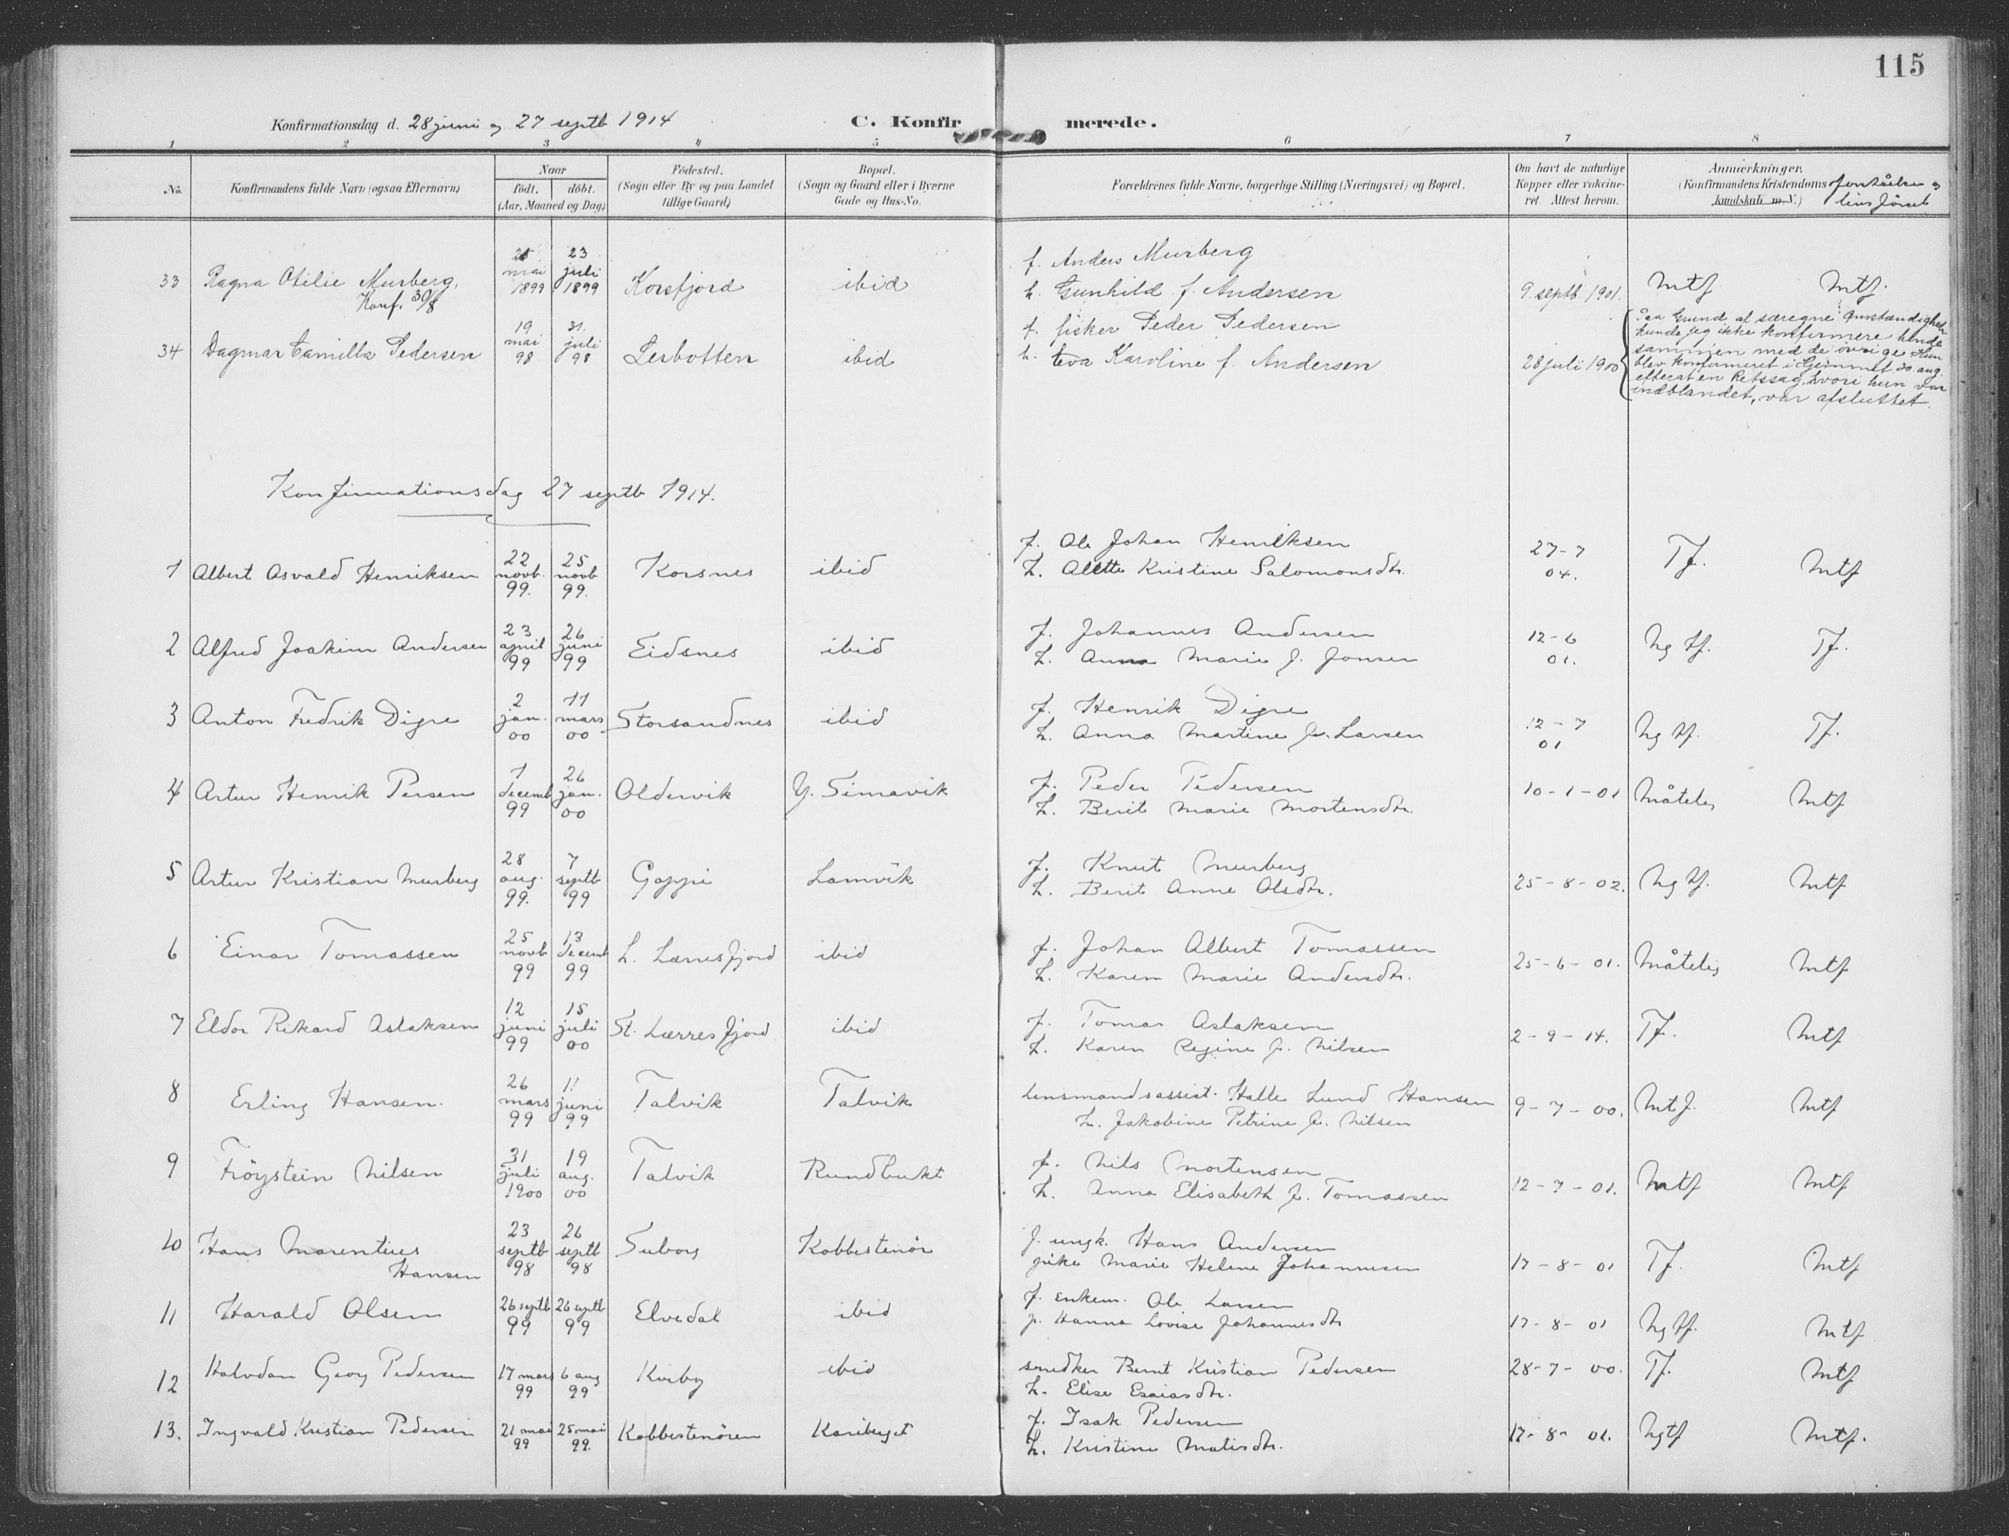 115
Konfirmationsdag d. 28 juni og 27 septb 1914
C. Konfirmerede.
1 2 3 4 5 6 7 8
No.
Konfirmandens fulde Navn (ogsaa Efternavn)
Naar
födt. döbt.
(Aar, Maaned og Dag)
Födested.
(Sogn eller By og paa Landet
tillige Gaard)
Bopæl.
(Sogn og Gaard eller i Byerne
Gade og Hus-No.
Forældrenes fulde Navne, borgerlige Stilling (Næringsvei) og Bopæl.
Om havt de naturlige
Kopper eller vaccine-
ret. Attest herom.
Anmærkninger.
(Konfirmandens Kristendoms
kundskab m. V.)
33 Ragna Otilie Murberg. 25 mai 1899 23 juli 1899 Korsfjord ibid f. Anders Murberg
Konf. 30/8 h. Gunhild f. Andersen 9 septb. 1901. Mtf Mtf.
34 Dagmar Camilla Pedersen 19 mai 98 31. juli 98 Lerbotten ibid f. fisker Peder Pedersen
h. Eva Karoline f. Andersen 28 juli 1900
Paa Grund af særegne Omstændigheder
kunde jeg ikke konfirmere hende
sammen med de övrige. Hun
blev konfirmeret i 30 aug.
efterat en Retssag, hvori hun var
indblandet, var afsluttet.
Konfirmationsdag 27 septb 1914.
1 Albert Osvald Henriksen 22 novb. 99. 25 novb 99. Korsnes ibid f. Ole Johan Henriksen
h. Alette Kristine Salomonsdtr. 27-7 04. Tf. Mtf
2 Alfred Joakim Andersen 23 april 99 26 juni 99 Eidsnes ibid f. Johannes Andersen
h. Anna Marie f. Jonsen 12-6 01. Ng tf. Tf.
3 Anton Fredrik Digre 2 jan. 00 11 mars 00 Storsandnes ibid f. Henrik Digre
h. Anna Martine f. Larsen 12-7 01 Ng tf. Tf.
4 Artur Henrik Persen 1 decemb 99 26 jan. 00 Oldervik Y. Simavik f. Peder Pedersen
h. Berit Marie Mortensdtr. 10-1-01 Måtelig Mtf
5 Artur Kristian Murberg 28 aug. 99. 7 septb 99 Goppi Lamvik f. Knut Murberg
h. Berit Anne Olsdtr. 25-8-02. Ng tf. Mtf
6 Einar Tomassen 25 novb 99 13 decemb 99 L. Lerresfjord ibid f. Johan Albert Tomassen
h. Karen Marie Andersdtr. 25-6-01. Måtelig Mtf
7 Eldor Rikard Aslaksen 12 juni 99 15 juli 00 St. Lerresfjord ibid f. Tomas Aslaksen
h. Karen Regine f. Nilsen 2-9-14. Tf. Mtf
8 Erling Hansen. 26 mars 99 11 juni 99 Talvik Talvik Lensmandsassist. Halle Lund Hansen
h. Jakobine Petrine f. Nilsen 9-7-00. Mtf. Mtf
9 Fröystein Nilsen 31 juli 1900 19 aug. 00 Talvik Rundbukt f. Nils Mortensen
h. Anna Elisabeth f. Tomassen 12-7-01. Mtf Mtf
10 Hans Marentius 23 septb 98 26 septb 98 Suborg Kobbestenör f. ungk. Hans Andersen
Hansen pike Marie Helene Johannesen 17-8-01 Tf. Mtf
11 Harald Olsen 26 septb 99 26 septb 99 Elvedal ibid f. enkem. Ole Larsen
p. Hanna Lovise Johannesdtr 17-8-01 Ng tf. Mtf
12 Halvdan Georg Pedersen 17 mars 99 6 aug 99 Kviby ibid snedker Bernt Kristian Pedersen
h. Elise Esaiasdtr. 28-7-00. Tf. Mtf
13. Ingvald Kristian Pedersen 21 mai 99 25 mai 99. Kobbestenören Kariberget f. Isak Pedersen
h. Kristine Matisdtr. 17-8-01. Ngtf Mtf.